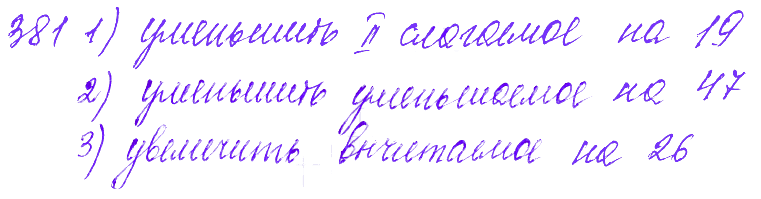 381 1) уменьшить II слагаемое на 19
2) уменьшить уменьшаемое на 47
3) увеличить вычитаемое на 26